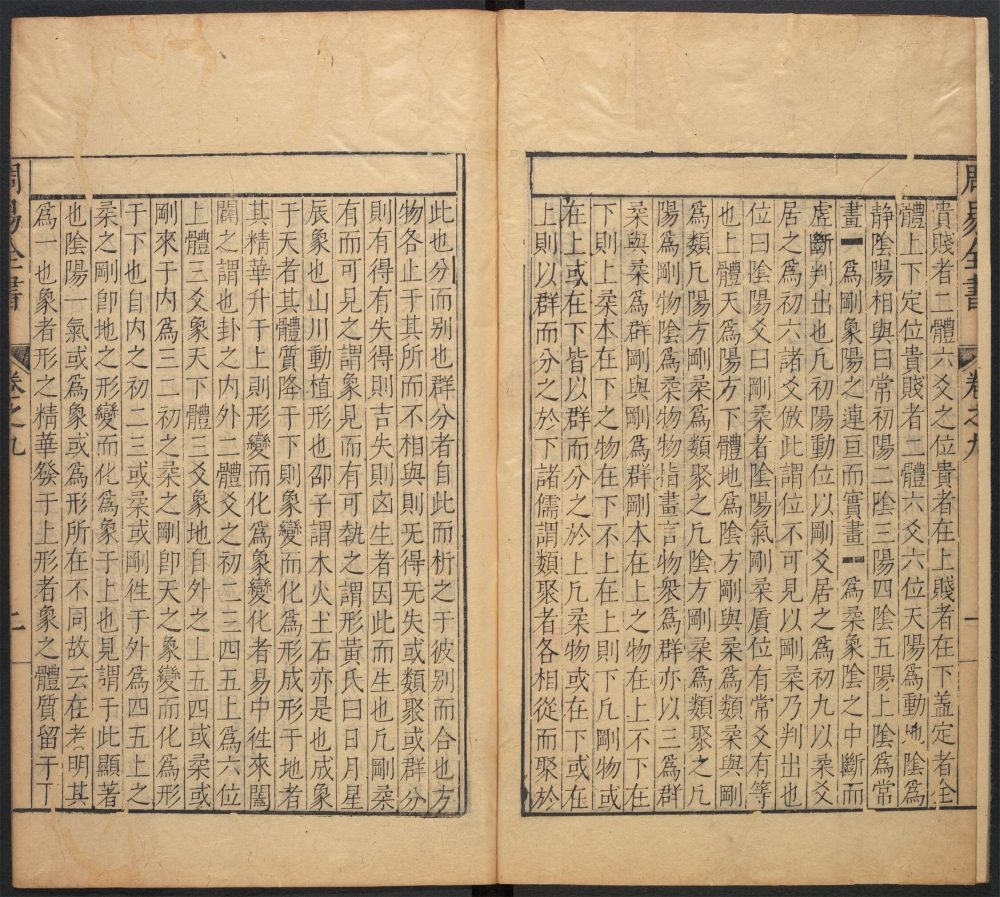 周易全書 卷之九 一
貴賤者二體六爻之位貴者在上賤者在下蓋定者全
體上下定位貴賤者二體六爻六位天陽爲動地陰爲
静陰陽相與曰常初陽二陰三陽四陰五陽上陰爲常
畫━爲剛象陽之連亘而實畫╍爲柔象陰之中斷而
虛斷判出也凡初陽動位以剛爻居之爲初九以柔爻
居之爲初六諸爻倣此謂位不可見以剛柔乃判出也
位曰陰陽爻曰剛柔者陰陽氣剛柔質位有常爻有等
也上體天爲陽方下體地爲陰方剛與柔爲類柔與剛
爲類凡陽方剛柔爲類聚之凡陰方剛柔爲類聚之凡
陽爲剛物陰爲柔物物指畫言物衆爲群亦以三爲群
柔與柔爲群剛與剛爲群剛本在上之物在上不下在
下則上柔本在下之物在下不上在上則下凡剛物或
在上或在下皆以群而分之於上凡柔物或在下或在
上則以群而分之於下諸儒謂類聚者各相從而聚於
此也分而别也群分者自此而析之于彼别而合也方
物各止于其所而不相與則无得无失或類聚或群分
則有得有失得則吉失則凶生者因此而生也凡剛柔
有而可見之謂象見而有可執之謂形黃氏曰日月星
辰象也山川動植形也邵子謂木火土石亦是也成象
于天者其體質降于下則象變而化爲形成形于地者
其精華升于上則形變而化爲象變化者易中徃來闔
闢之謂也卦之内外二體爻之初二三四五上爲六位
上體三爻象天下體三爻象地自外之上五四或柔或
剛來于内爲三二初之柔之剛卽天之象變而化爲形
于下也自内之初二三或柔或剛徃于外爲四五上之
柔之剛卽地之形變而化爲象于上也見謂于此顯著
也陰陽一氣或爲象或爲形所在不同故云在者明其
爲一也象者形之精華發于上形者象之體質留于丁
周易全書 卷之九 二